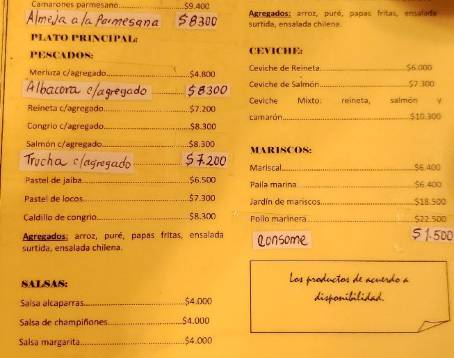 Camarones parmesano.....................$9.400
Almeja a la Parmesana $8300
PLATO PRINCIPAL:
PESCADOS:
Merluza c/agregado.....................$4.800
Albacora c/agregado $8300
Reineta c/agregado.....................$7.200
Congrio c/agregado.....................$8.300
Salmón c/agregado.....................$8.300
Trucha c/agregado $7.200
Pastel de jaiba.....................$6.500
Pastel de locos.....................$7.300
Caldillo de congrio.....................$8.300
Agregados: arroz, puré, papas fritas, ensalada
surtida, ensalada chilena.
SALSAS:
Salsa alcaparras.....................$4.000
Salsa de champiñones.....................$4.000
Salsa margarita.....................$4.000
Agregados: arroz, puré, papas fritas, ensalada
surtida, ensalada chilena.
CEVICHE:
Ceviche de Reineta.....................$6.000
Ceviche de Salmón.....................$7.300
Ceviche Mixto: reineta, salmón y
camarón.....................$10.300
MARISCOS:
Mariscal.....................$6.400
Paila marina.....................$6.400
Jardín de mariscos.....................$18.500
Pollo marinera.....................$22.500
Consome $1.500
Los productos de acuerdo a
disponibilidad.